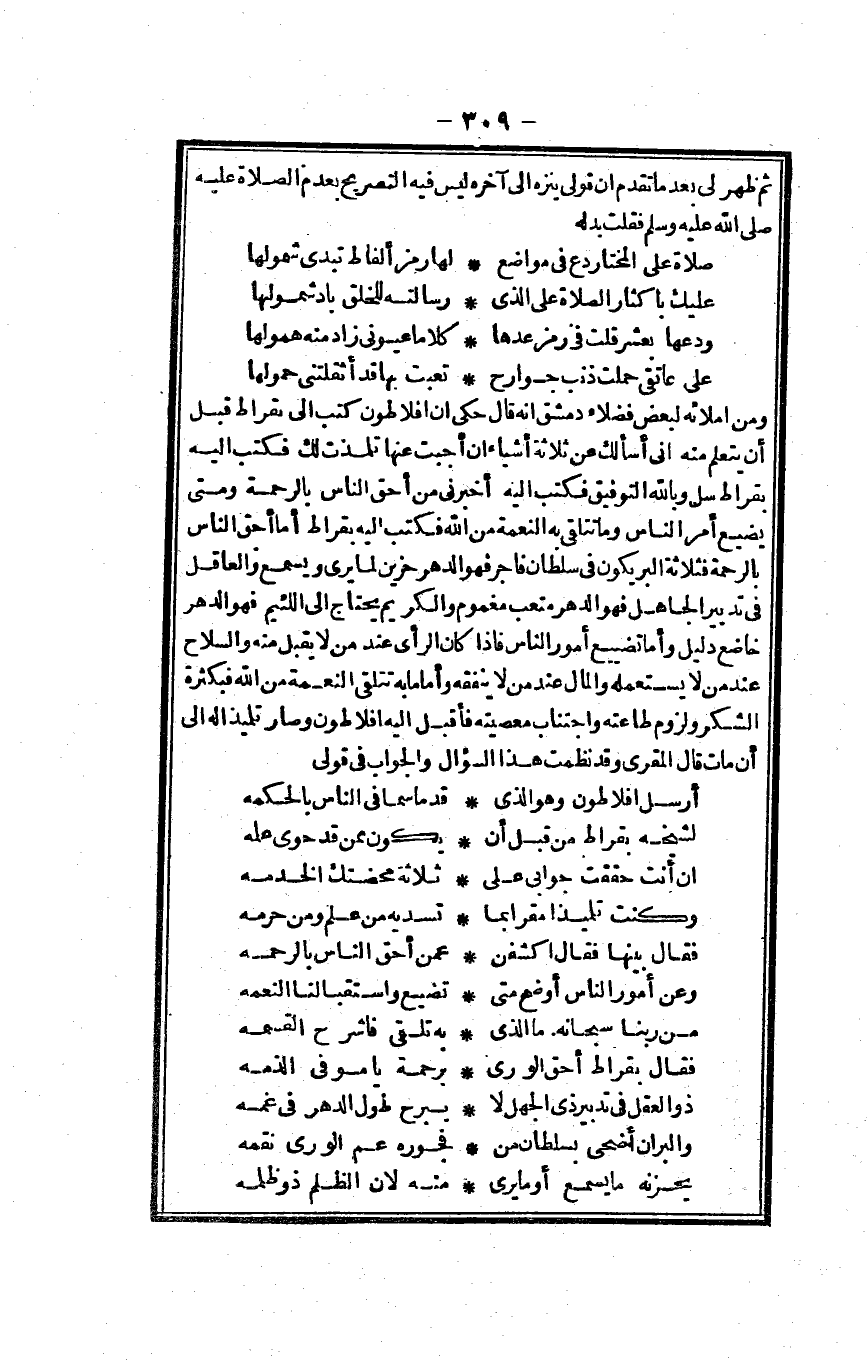 - ٣٠٩ -
ثم ظهر لى بعد ماتقدم ان قولى ينزه الى آخره ليس فيه التصريح بعدم الصلاة عليه
صلى الله عليه وسلم فقلت بدله
صلاة على المختار دع فى مواضع * لها رمز ألفاظ تبدى شمولها
عليك باكثار الصلاة على الذى * رسالته للخلق بادشمولها
ودعها بعشر قلت فى رمز عدها * كلاما عيونى زاد منه همولها
على عاتقى حملت ذنب جوارح * تعبت بها قد أثقلتنى حمولها
ومن املائه لبعض فضلاء دمشق انه قال حكى ان افلاطون كتب الى بقراط قبل
أن يتعلم منه انى أسألك عن ثلاثة أشياء ان أجبت عنها تلمذت لك فكتب اليه
بقراط سل وبالله التوفيق فكتب اليه أخبرنى من أحق الناس بالرحمة ومتى
يضيع أمر الناس وماتتلقى به النعمة من الله فكتب اليه بقراط أما أحق الناس
بالرحمة فثلاثة البر يكون فى سلطان فاجر فهو الدهر حزين لما يرى ويسمع والعاقل
فى تدبير الجاهل فهو الدهر متعب مغموم والكريم يحتاج الى اللئيم فهو الدهر
خاضع دليل وأما تضييع أمور الناس فاذا كان الرأى عند من لا يقبل منه والسلاح
عند من لا يستعمله والمال عند من لا ينفقه وأما مابه تتلقى النعمة من الله فبكثرة
الشكر ولزوم طاعته واجتناب معصيته فأقبل اليه افلاطون وصار تليذا له الى
أن مات قال المقرى وقد نظمت هذا السؤال والجواب فى قولى
أرسل افلاطون وهو الذى * قدما سما فى الناس بالحكمه
لشيخه بقراط من قبل أن * يكون ممن قد حوى علمه
ان أنت حققت جوابى على * ثلاثة محضتك الخدمه
وكنت تليذا مقرا بما * تسديه من علم ومن حرمه
فقال بينها فقال اكشفن * عمن أحق الناس بالرحمه
وعن أمور الناس أوضح متى * تضيع واستقبالنا النعمه
من ربنا سبحانه. ما الذى * به تلقى فاشرح القسمه
فقال بقراط أحق الورى * برحمة يا موفى الذمه
ذوالعقل فى تدبير ذى الجهل لا * يبرح طول الدهر فى غمه
والبران أضحى بسلطان من * فجوره عم الورى نقمه
يحزنه مايسمع أومايرى * منه لان الظلم ذو ظلمه